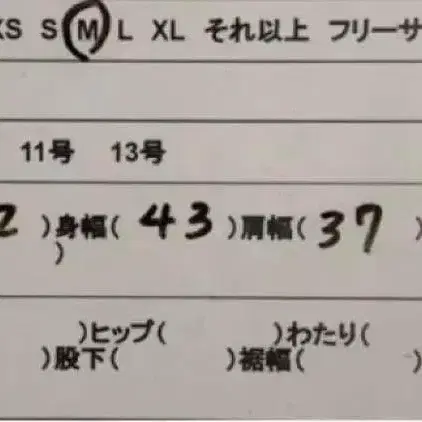 XS S M L XL それ以上 フリーサ
11号 13号
2 )身幅( 43 )肩幅( 37 )
)
)ヒップ( )わたり(
)股下( )裾幅( )